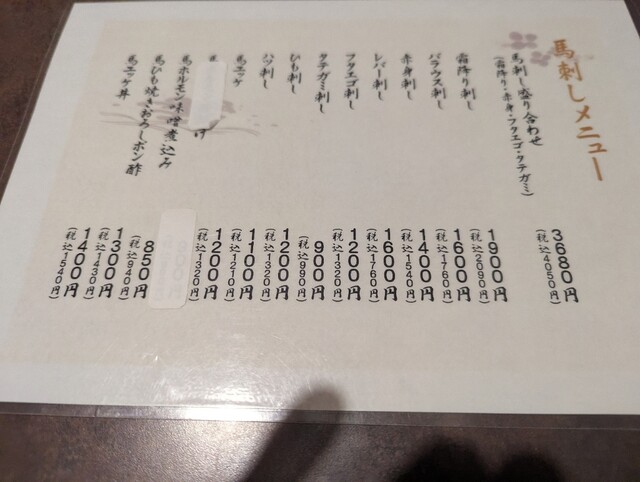 馬刺しメニュー
馬刺し盛り合わせ
(霜降り・赤身・フタエゴ・タテガミ)
3680円
(税込4050円)
霜降り刺し
1900円
(税込2090円)
バラウス刺し
1600円
(税込1760円)
赤身刺し
1400円
(税込1540円)
レバー刺し
1600円
(税込1760円)
フタエゴ刺し
1200円
(税込1320円)
タテガミ刺し
900円
(税込990円)
ひも刺し
1200円
(税込1320円)
ハツ刺し
1100円
(税込1210円)
馬ユッケ
1200円
(税込1320円)
馬ホルモン味噌煮込み
850円
(税込940円)
馬ひも焼きおろしポン酢
1300円
(税込1430円)
馬ユッケ丼
1400円
(税込1540円)